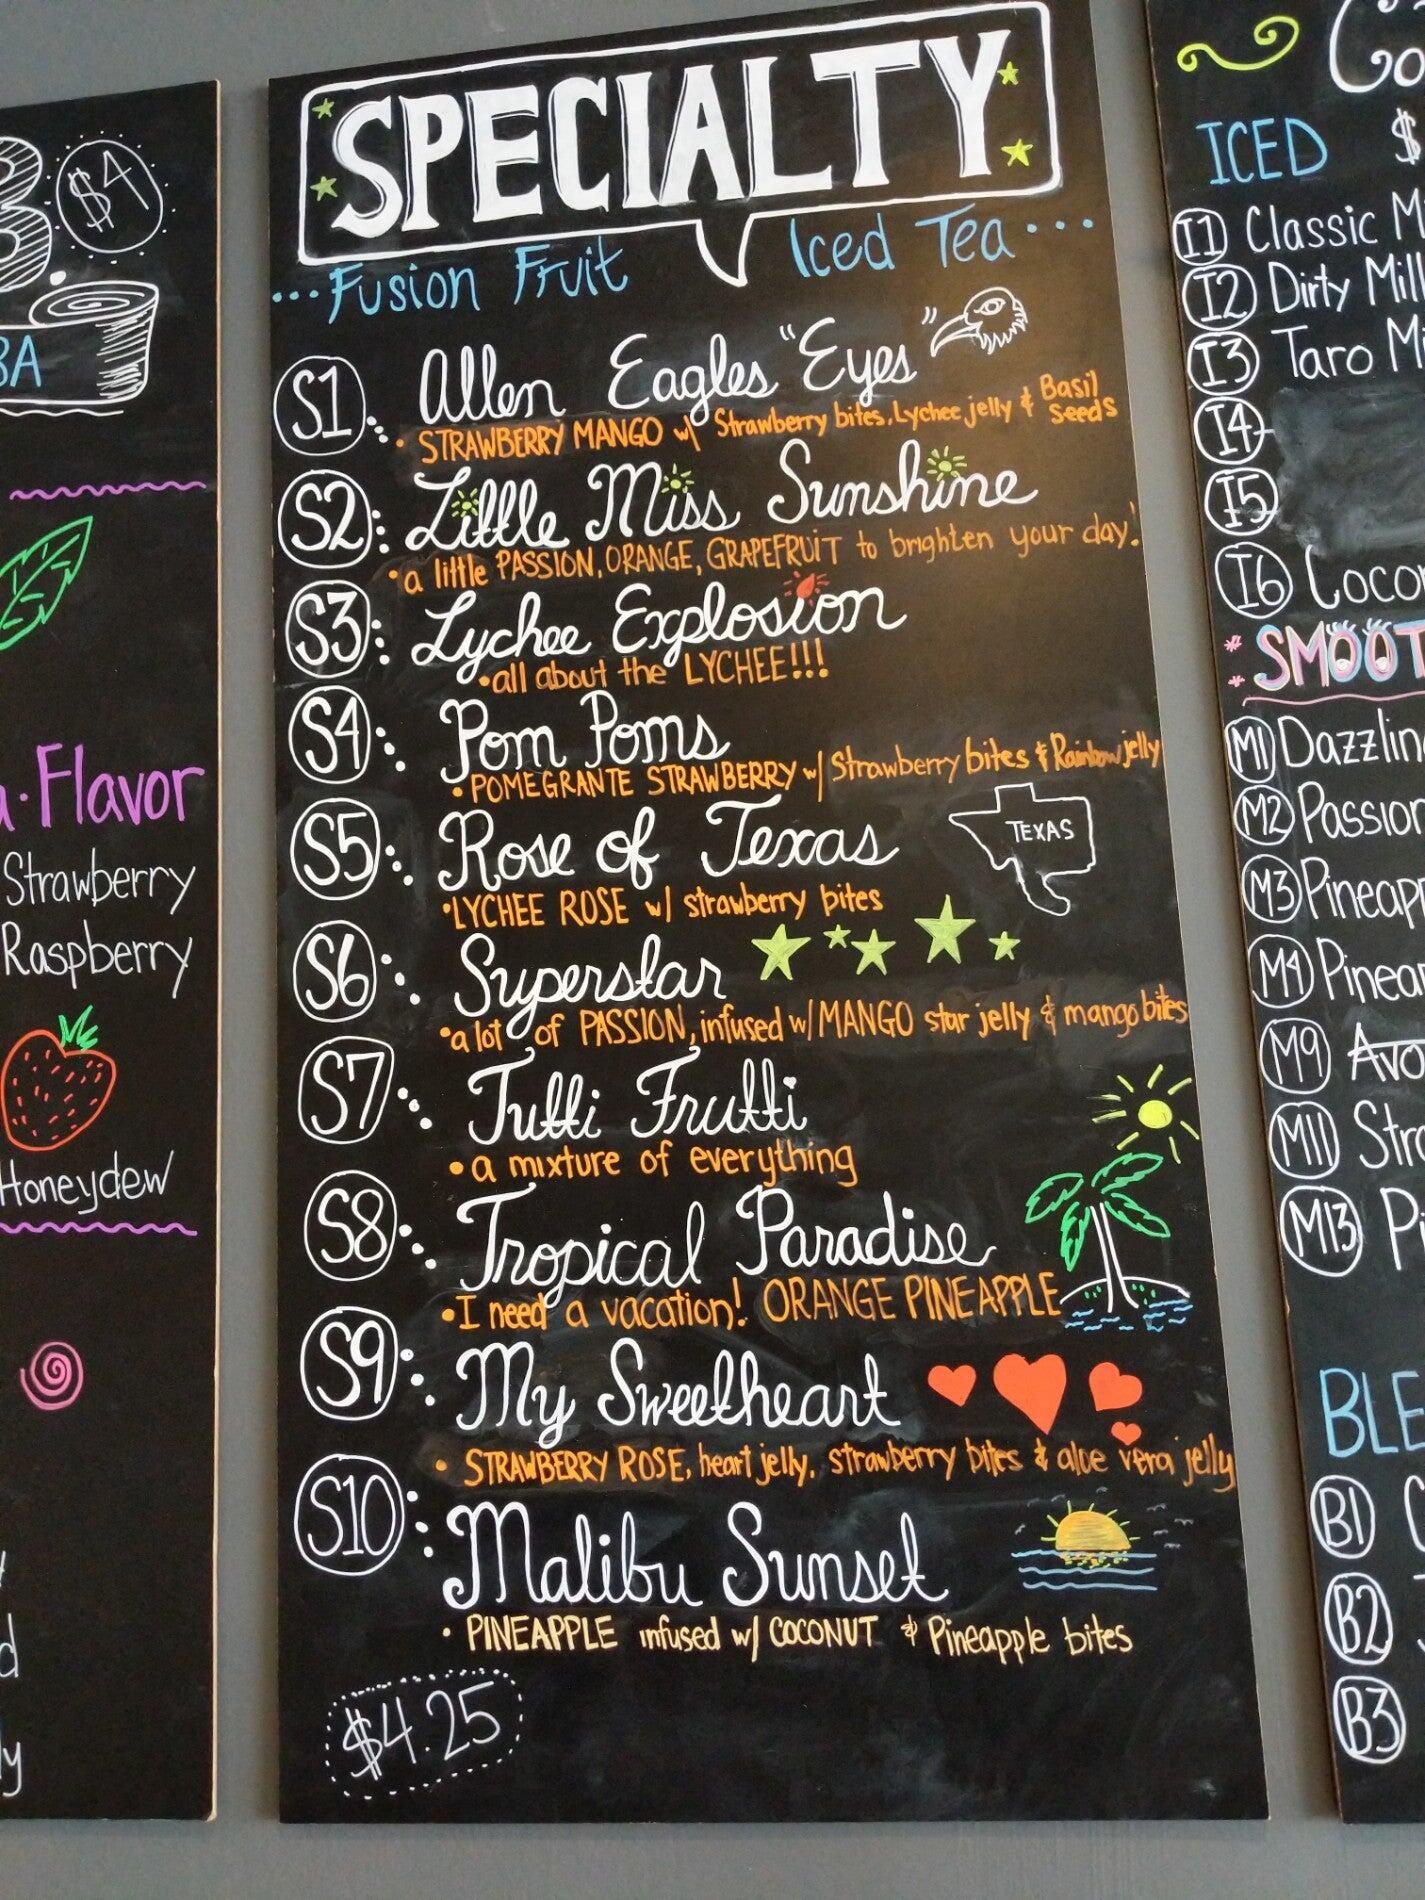 $4
BA
Flavor
Strawberry
Raspberry
Honeydew
SPECIALTY
...Fusion Fruit Iced Tea...
S1 Allen Eagles "Eyes"
• STRAWBERRY MANGO w/ Strawberry bites, Lychee jelly & Basil Seeds
S2 Little Miss Sunshine
• a little PASSION, ORANGE, GRAPEFRUIT to brighten your day!
S3 Lychee Explosion
• all about the LYCHEE!!!
S4 Pom Poms
• POMEGRANTE STRAWBERRY w/ Strawberry bites & Rainbow jelly
S5 Rose of Texas
TEXAS
• LYCHEE ROSE w/ strawberry bites
S6 Superstar
• a lot of PASSION, infused w/ MANGO star jelly & mango bites
S7 Tutti Frutti
• a mixture of everything
S8 Tropical Paradise
• I need a vacation! ORANGE PINEAPPLE
S9 My Sweetheart
• STRAWBERRY ROSE, heart jelly, strawberry bites & aloe vera jelly
S10 Malibu Sunset
• PINEAPPLE infused w/ COCONUT & Pineapple bites
$4.25
ICED $
I1 Classic M
I2 Dirty Mil
I3 Taro Mi
I4
I5
I6 Coco
SMOOT
M1 Dazzlin
M2 Passio
M3 Pineap
M4 Pinea
M9 Avo
M11 Str
M13 Pi
BLE
B1
B2
B3